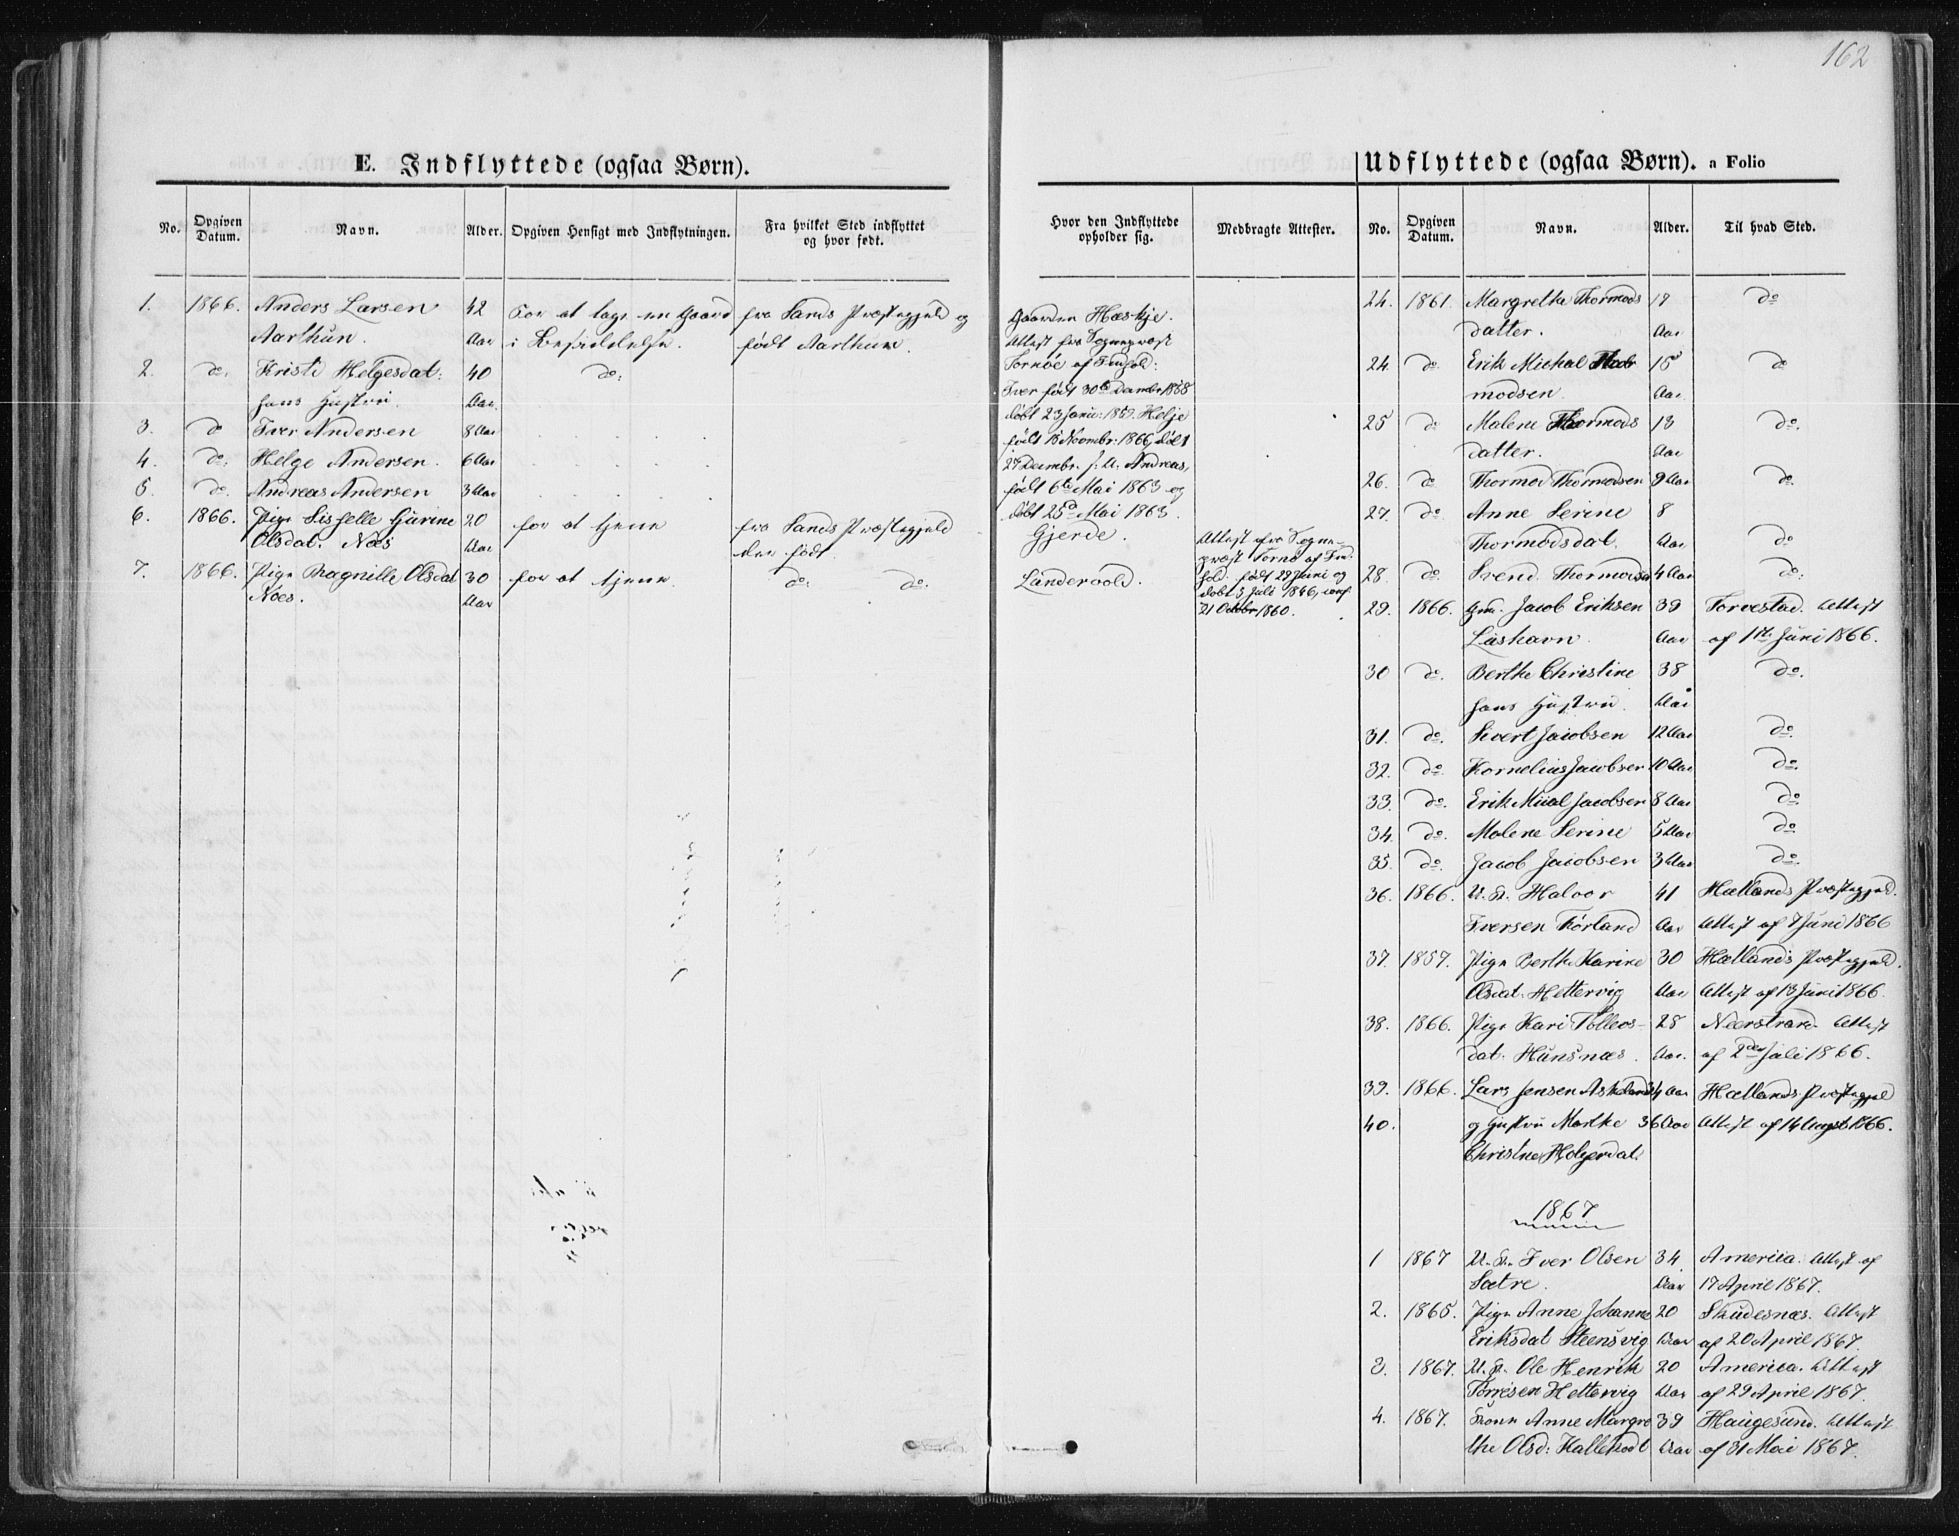 162
E. Indflyttede (ogsaa Børn).
No. Opgiven Datum. Navn. Alder. Opgiven Hensigt med Indflytningen. Fra hvilket Sted indflyttet og hvor født.
1. 1866. Anders Larsen 42 For at tage en Gaard fra Sands Præstegjeld og
Aarthun. Aar i Besiddelse. født Aarthun.
2. do. Kristi Helgesdat: 40 do:
hans Hustru. Aar.
3. do Iver Andersen 8 Aar
4. do. Helge Andersen. 6 Aar
5. do. Andreas Andersen 3 Aar
6. 1866. Pige Sisselle Gurine 20 for at tjene fra Sands Præstegjeld
Olsdat. Næs Aar der født.
7. 1866. Pige Ragnille Olsdat 30 for at tjene. do: do:
Noes. Aar
Hvor den Indflyttede opholder sig. Medbragte Attester.
Gaarden Hæskje.
Attest fra Sognepræst
Tornøe af Indhold:
Iver født 30te Decembr 1858
døbt 23 Janu: 1859. Helje
født 15 Novembr. 1866, døbt
27 Decembr. s: A: Andreas,
født 6te Mai 1863 og
døbt 25de Mai 1863.
Gjerde. Attest fra Sogne-
præst Tornø af Ind-
hold. født 29 Juni og
døbt 5 Juli 1846, conf
21 Octobr 1860.
Landervold.
Udflyttede (ogsaa Børn). a Folio
No. Opgiven Datum. Navn. Alder. Til hvad Sted.
24. 1861. Margrethe Thormods 19 do
datter. Aar
24. do. Erik Mickal Thor 15 do
modsen. Aar.
25 do Malene Thormods 13 do.
datter. Aar
26. do Thormod Thormodsen 9 Aar do.
27. do. Anne Serine 8
Thormodsdat. Aar do
28. do. Svend Thormodsen 4 Aar do.
29. 1866. Gm. Jacob Eriksen 39 Torvestad. Attest
Lashavn. Aar af 1ste Juni 1866.
30 do. Berthe Christine 38 do.
hans Hustru. Aar
31. do. Sivert Jacobsen 12 Aar do.
32. do. Kornelius Jacobsen 10 Aar do.
33. do. Erik Mikal Jacobsen 8 Aar do.
34. do. Malene Serine 5 Aar do
35. do. Jacob Jacobsen 3 Aar do.
36. 1866. U. K. Halvor 41 Hætlands Præstegjeld.
Iversen Førland Aar Attest af 7 Juni 1866
37. 1857. Pige Berthe Karine 30 Hætlands Præstegjeld.
Olsdat. Hettervig Aar Attest af 13 Juni 1866.
38. 1866. Pige Kari Tolleos- 28 Nærstrand. Attest
dat. Hunsnæs. Aar. af 2den Juli 1866.
39. 1866. Lars Jensen Askeland 34 Aar Hætlands Præstegjeld
40. og Hustru Marthe 36 Aar Attest af 14 August 1866.
Christine Holgerdat.
1867
1 1867 U. K. Iver Olsen 34. America. Attest af
Sætre. Aar 17 April 1867.
2. 1865. Pige Anne Johanne 20 Skudesnæs. Attest
Eriksdat Steensvig Aar af 20 April 1867.
3. 1867. U. K. Ole Henrik 20 America. Attest
Torresen Hettervig Aar af 29 April 1867.
4. 1867. Kone Anne Margre 39 Haugesund. Attest
the Olsd: Kallekodt Aar af 31 Mai 1867.